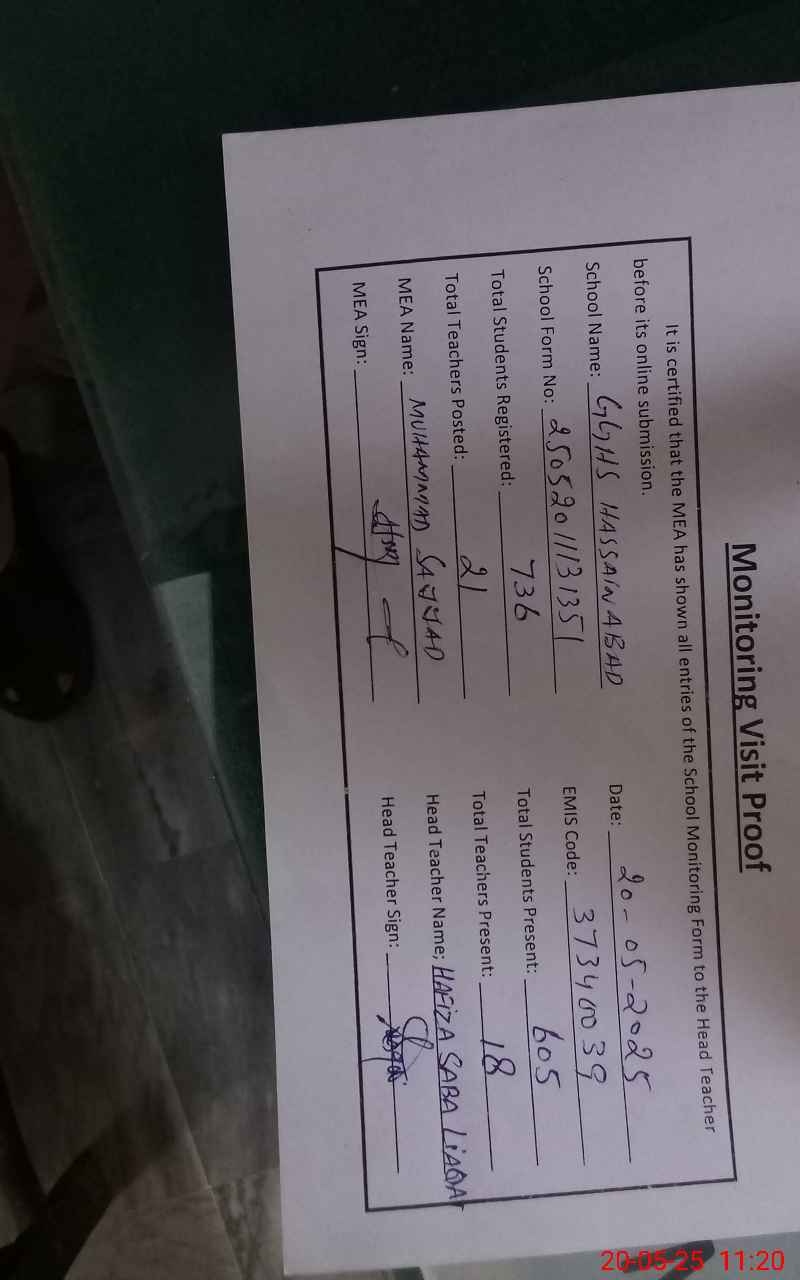 Monitoring Visit Proof
It is certified that the MEA has shown all entries of the School Monitoring Form to the Head Teacher
before its online submission.
School Name: GGHS HASSAINABAD Date: 20-05-2025
School Form No: 25052011131351 EMIS Code: 37340039
Total Students Registered: 736 Total Students Present: 605
Total Teachers Posted: 21 Total Teachers Present: 18
MEA Name: MUHAMMAD SAJJAD Head Teacher Name; HAFIZA SABA LIAQAT
MEA Sign: Head Teacher Sign:
20-05-25 11:20